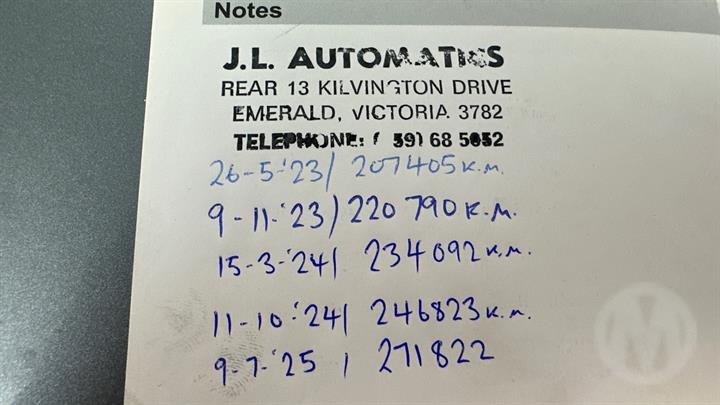 Notes
J.L. AUTOMATICS
REAR 13 KILVINGTON DRIVE
EMERALD, VICTORIA 3782
TELEPHONE: ( 59) 68 5052
26-5-'23/ 207405 K.M.
9-11-'23/ 220 790 K.M.
15-3-'24/ 234092 K.M.
11-10-'24/ 246823 K.M.
9-7-'25 / 271822
M